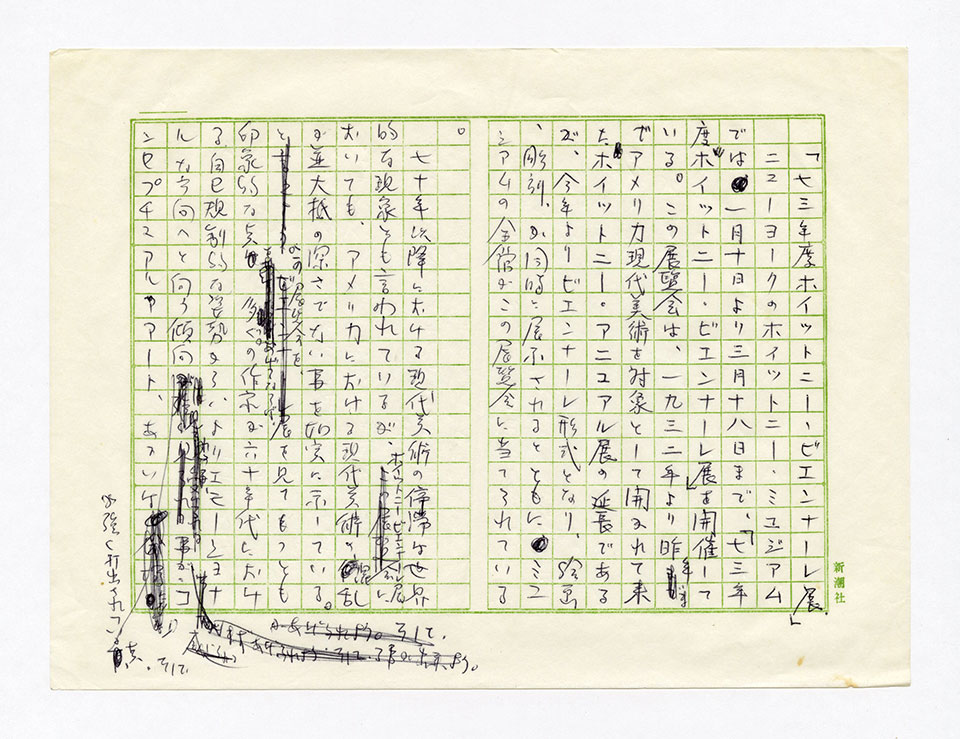 「七三年度ホイットニー・ビエンナーレ展」
ニューヨークのホイットニー・ミュジアム
では一月十日より三月十八日まで、「七三年
度ホイットニー・ビエンナーレ展」を開催して
いる。この展覧会は、一九三二年より昨年ま
でアメリカ現代美術を対象として開かれて来
たホイットニー・アニュアル展の延長である
が、今年よりビエンナーレ形式となり、絵画
、彫刻、が同時に展示されるとともに、ミュ
ジアムの全館がこの展覧会に当てられている
。
七十年以降における現代美術の停滞は世界
的な現象とも言われているが、ホイットニービエンナーレ展
おいても、アメリカにおける現代美術の混乱
が並大抵の深さでない事を如実に示している。
この展覧会を見てもっとも
印象的な点は、多くの作家が六十年代におけ
る自己規制的な姿勢より、よりエモーショナ
ルな方向へと向う傾向
ンセプチュアルアート、あるいは
が強く打出されている点、そして
新潮社